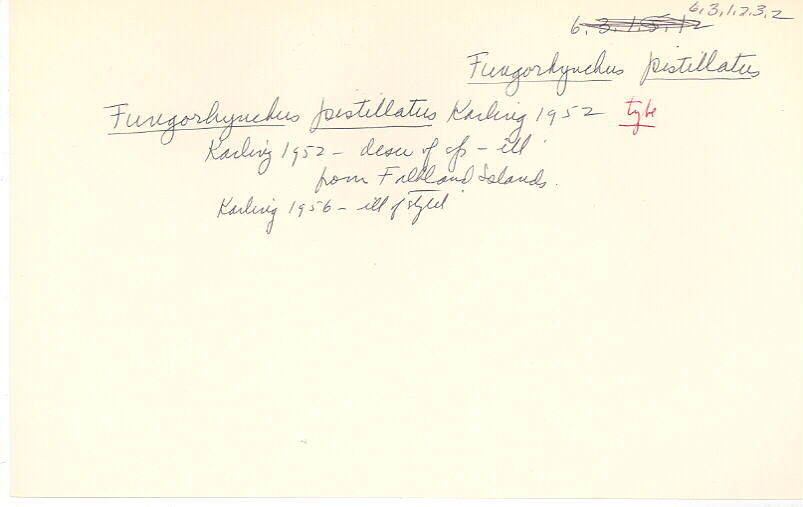 6,3,1,2,3,2
6,3,1,5,12
Fungorhynchus pistillatus
Fungorhynchus pistillatus Karling 1952 type
Karling 1952 – descr of sp – ill
from Falkland Islands.
Karling 1956 – ill of stylet